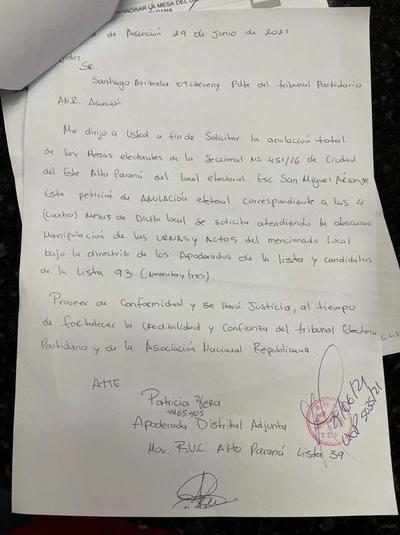 HONORAR LA MESA DEL
de Asunción 29 de Junio de 2021
Sr.
Santiago Brizuela Etcheveny Pdte del tribunal Partidario
A.N.R. Asunción
Me dirijo a Usted a fin de Solicitar la anulación total
de las Mesas electorales de la Seccional Nº 451/16 de Ciudad
del Este Alto Paraná del local electoral Esc San Miguel
Esta petición de ANULACIÓN eletoral correspondiente a las 4
(cuatro) Mesas de Dicho local se solicita atendiendo la obscura
Manipulación de las URNAS y ACTAS del mencionado Local
bajo la directriz de los Apoderados de la lista y candidatos
de la Lista 93 (Noventa y tres)
Proveer de Conformidad y se Hará Justicia, al tiempo
de fortalecer la Credibilidad y Confianza del tribunal Electoral
Partidario y de la Asociación Nacional Republicana
ATTE
Patricia Vera
4965405
Apoderada Distrital Adjunta
Mov. R.U.C. Alto Paraná Lista 39
29/06/21